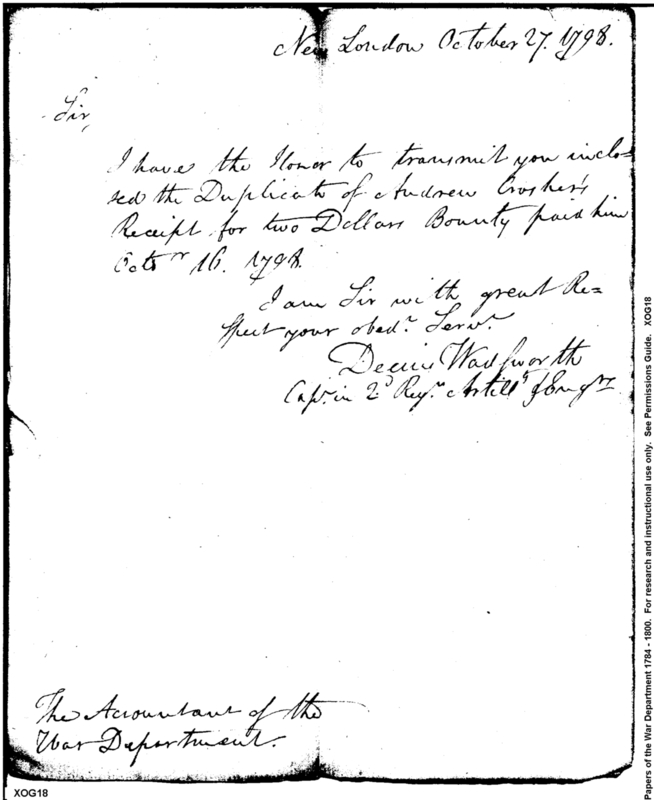 New London October 27. 1798.
Sir,
I have the Honor to transmit you inclo=
sed the Duplicate of Andrew Crosher's
Receipt for two Dollars Bounty paid him
Octo.r 16. 1798.
I am Sir with great Re=
spect your obed.t Serv.t
Decius Wadsworth
Cap.t in 2.d Reg.t Artill.s & Eng.rs
The Accountant of the
War Department.
XOG18
Papers of the War Department 1784 - 1800. For research and instructional use only. See Permissions Guide. XOG18